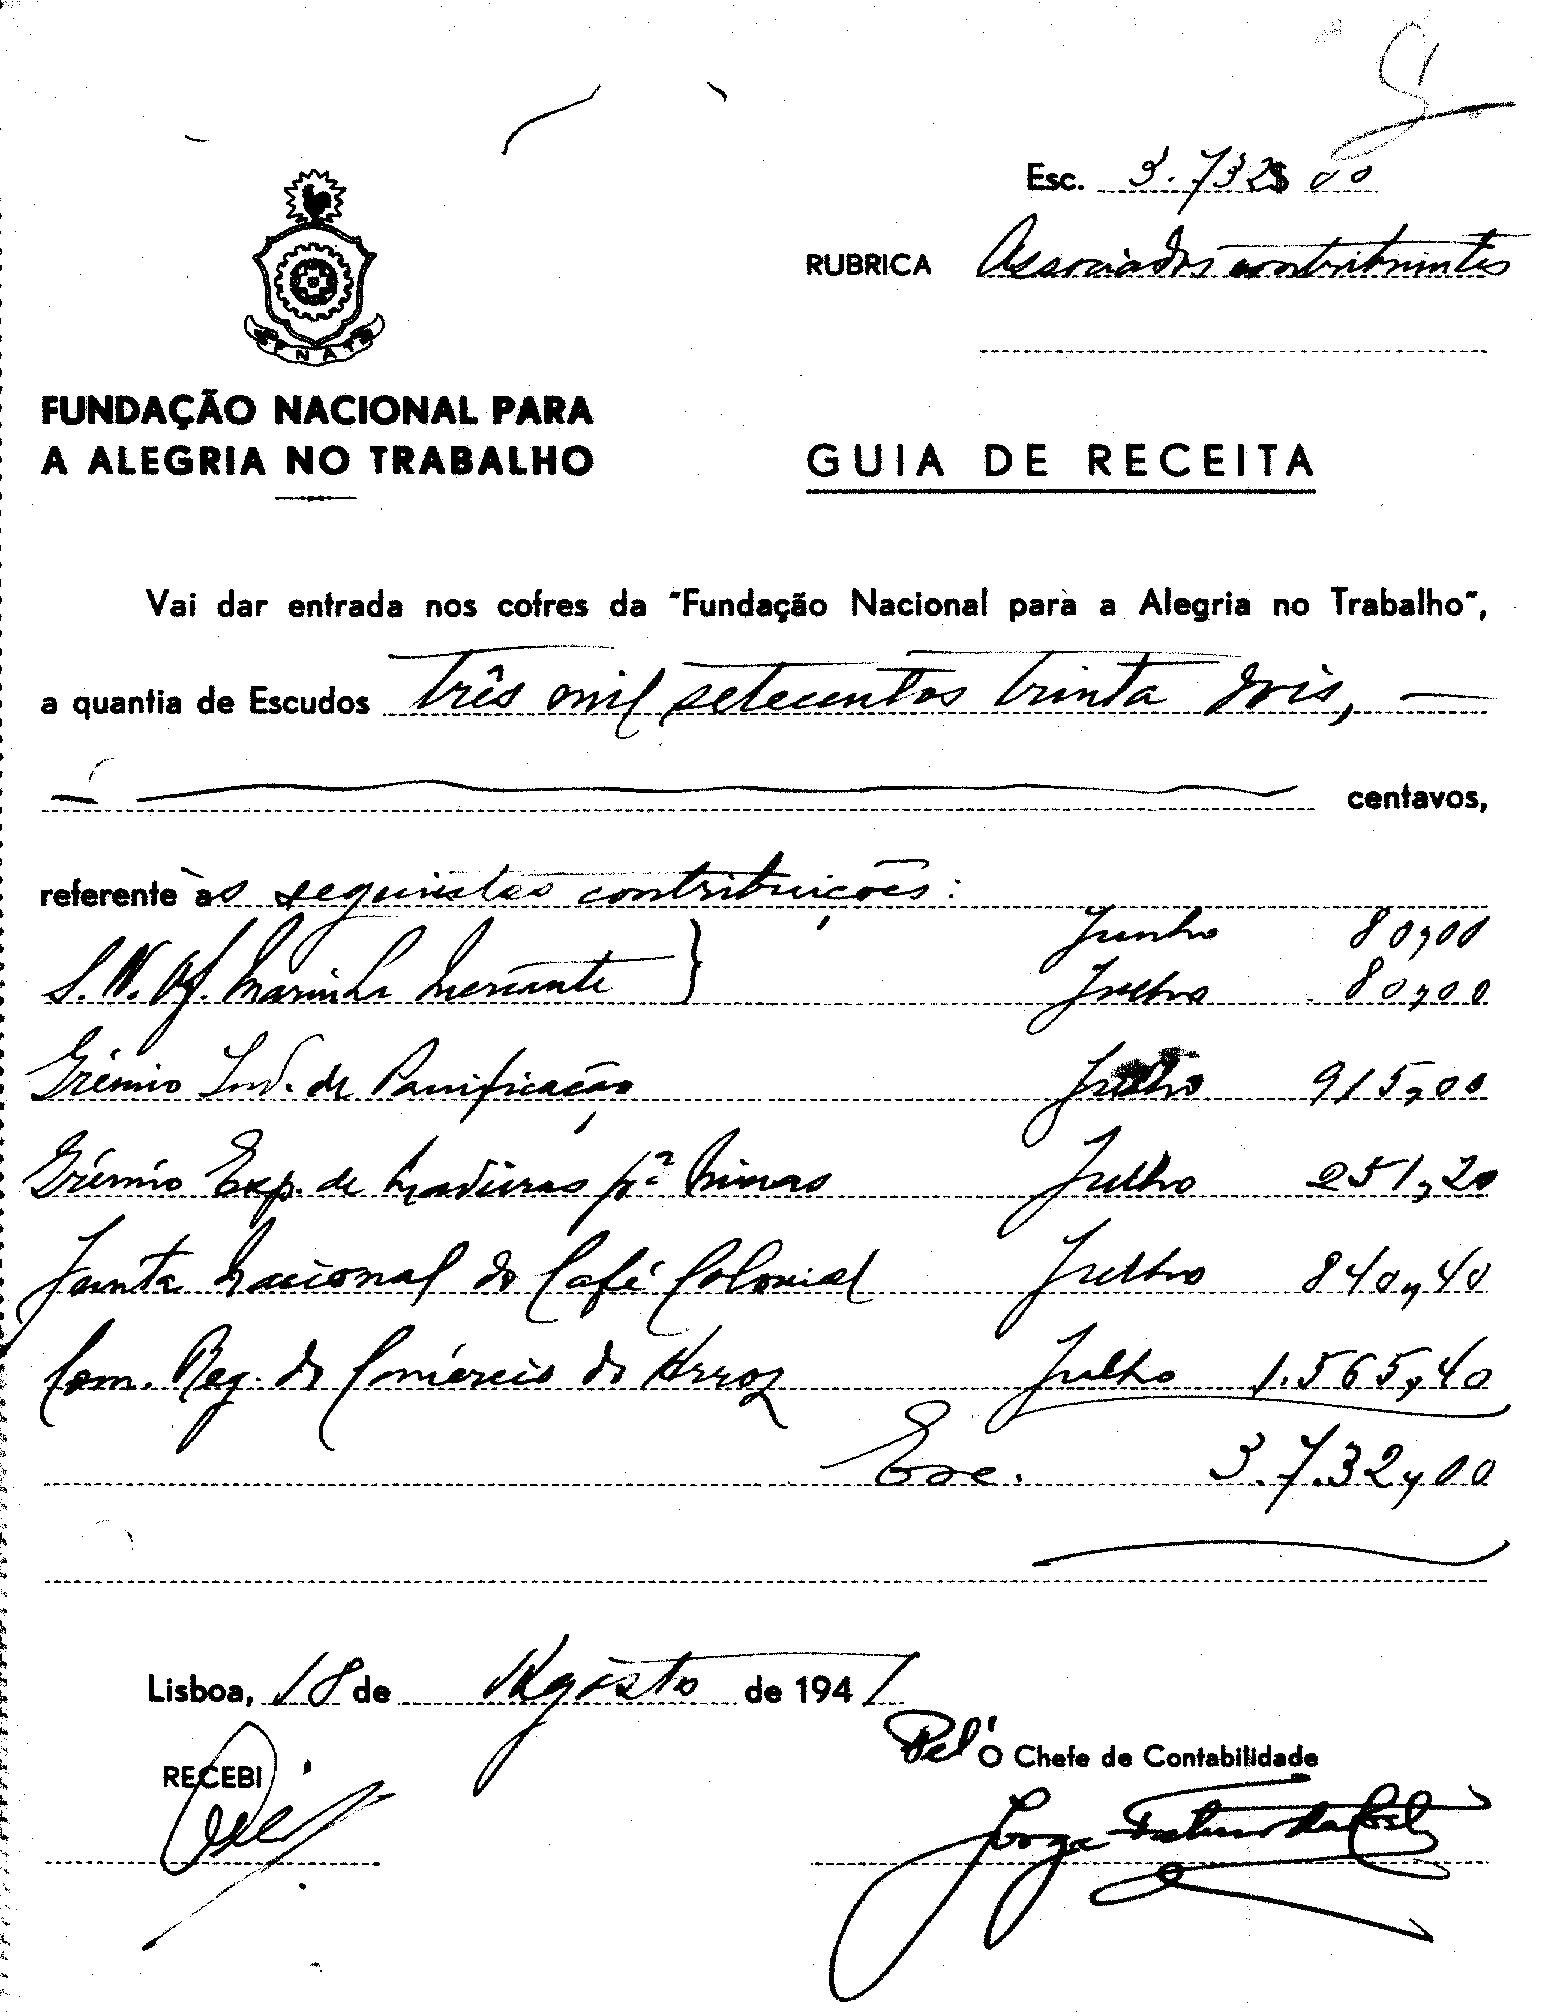 Esc. 3.732$00
RUBRICA Associados contribuintes
FNAT
FUNDAÇÃO NACIONAL PARA
A ALEGRIA NO TRABALHO
GUIA DE RECEITA
Vai dar entrada nos cofres da "Fundação Nacional para a Alegria no Trabalho",
a quantia de Escudos três mil setecentos trinta dois, —
— centavos,
referente às seguintes contribuições:
S. N. Of. Marinha Mercante } Junho 80,00
Julho 80,00
Grémio Ind. de Panificação Julho 915,00
Grémio Exp. de Madeiras pª Minas Julho 251,20
Junta Nacional do Café Colonial Julho 840,40
Com. Reg. do Comércio do Arroz Julho 1.565,40
Esc. 3.732,00
Lisboa, 18 de Agosto de 1941
Pel' O Chefe de Contabilidade
RECEBI
Jorge da Costa